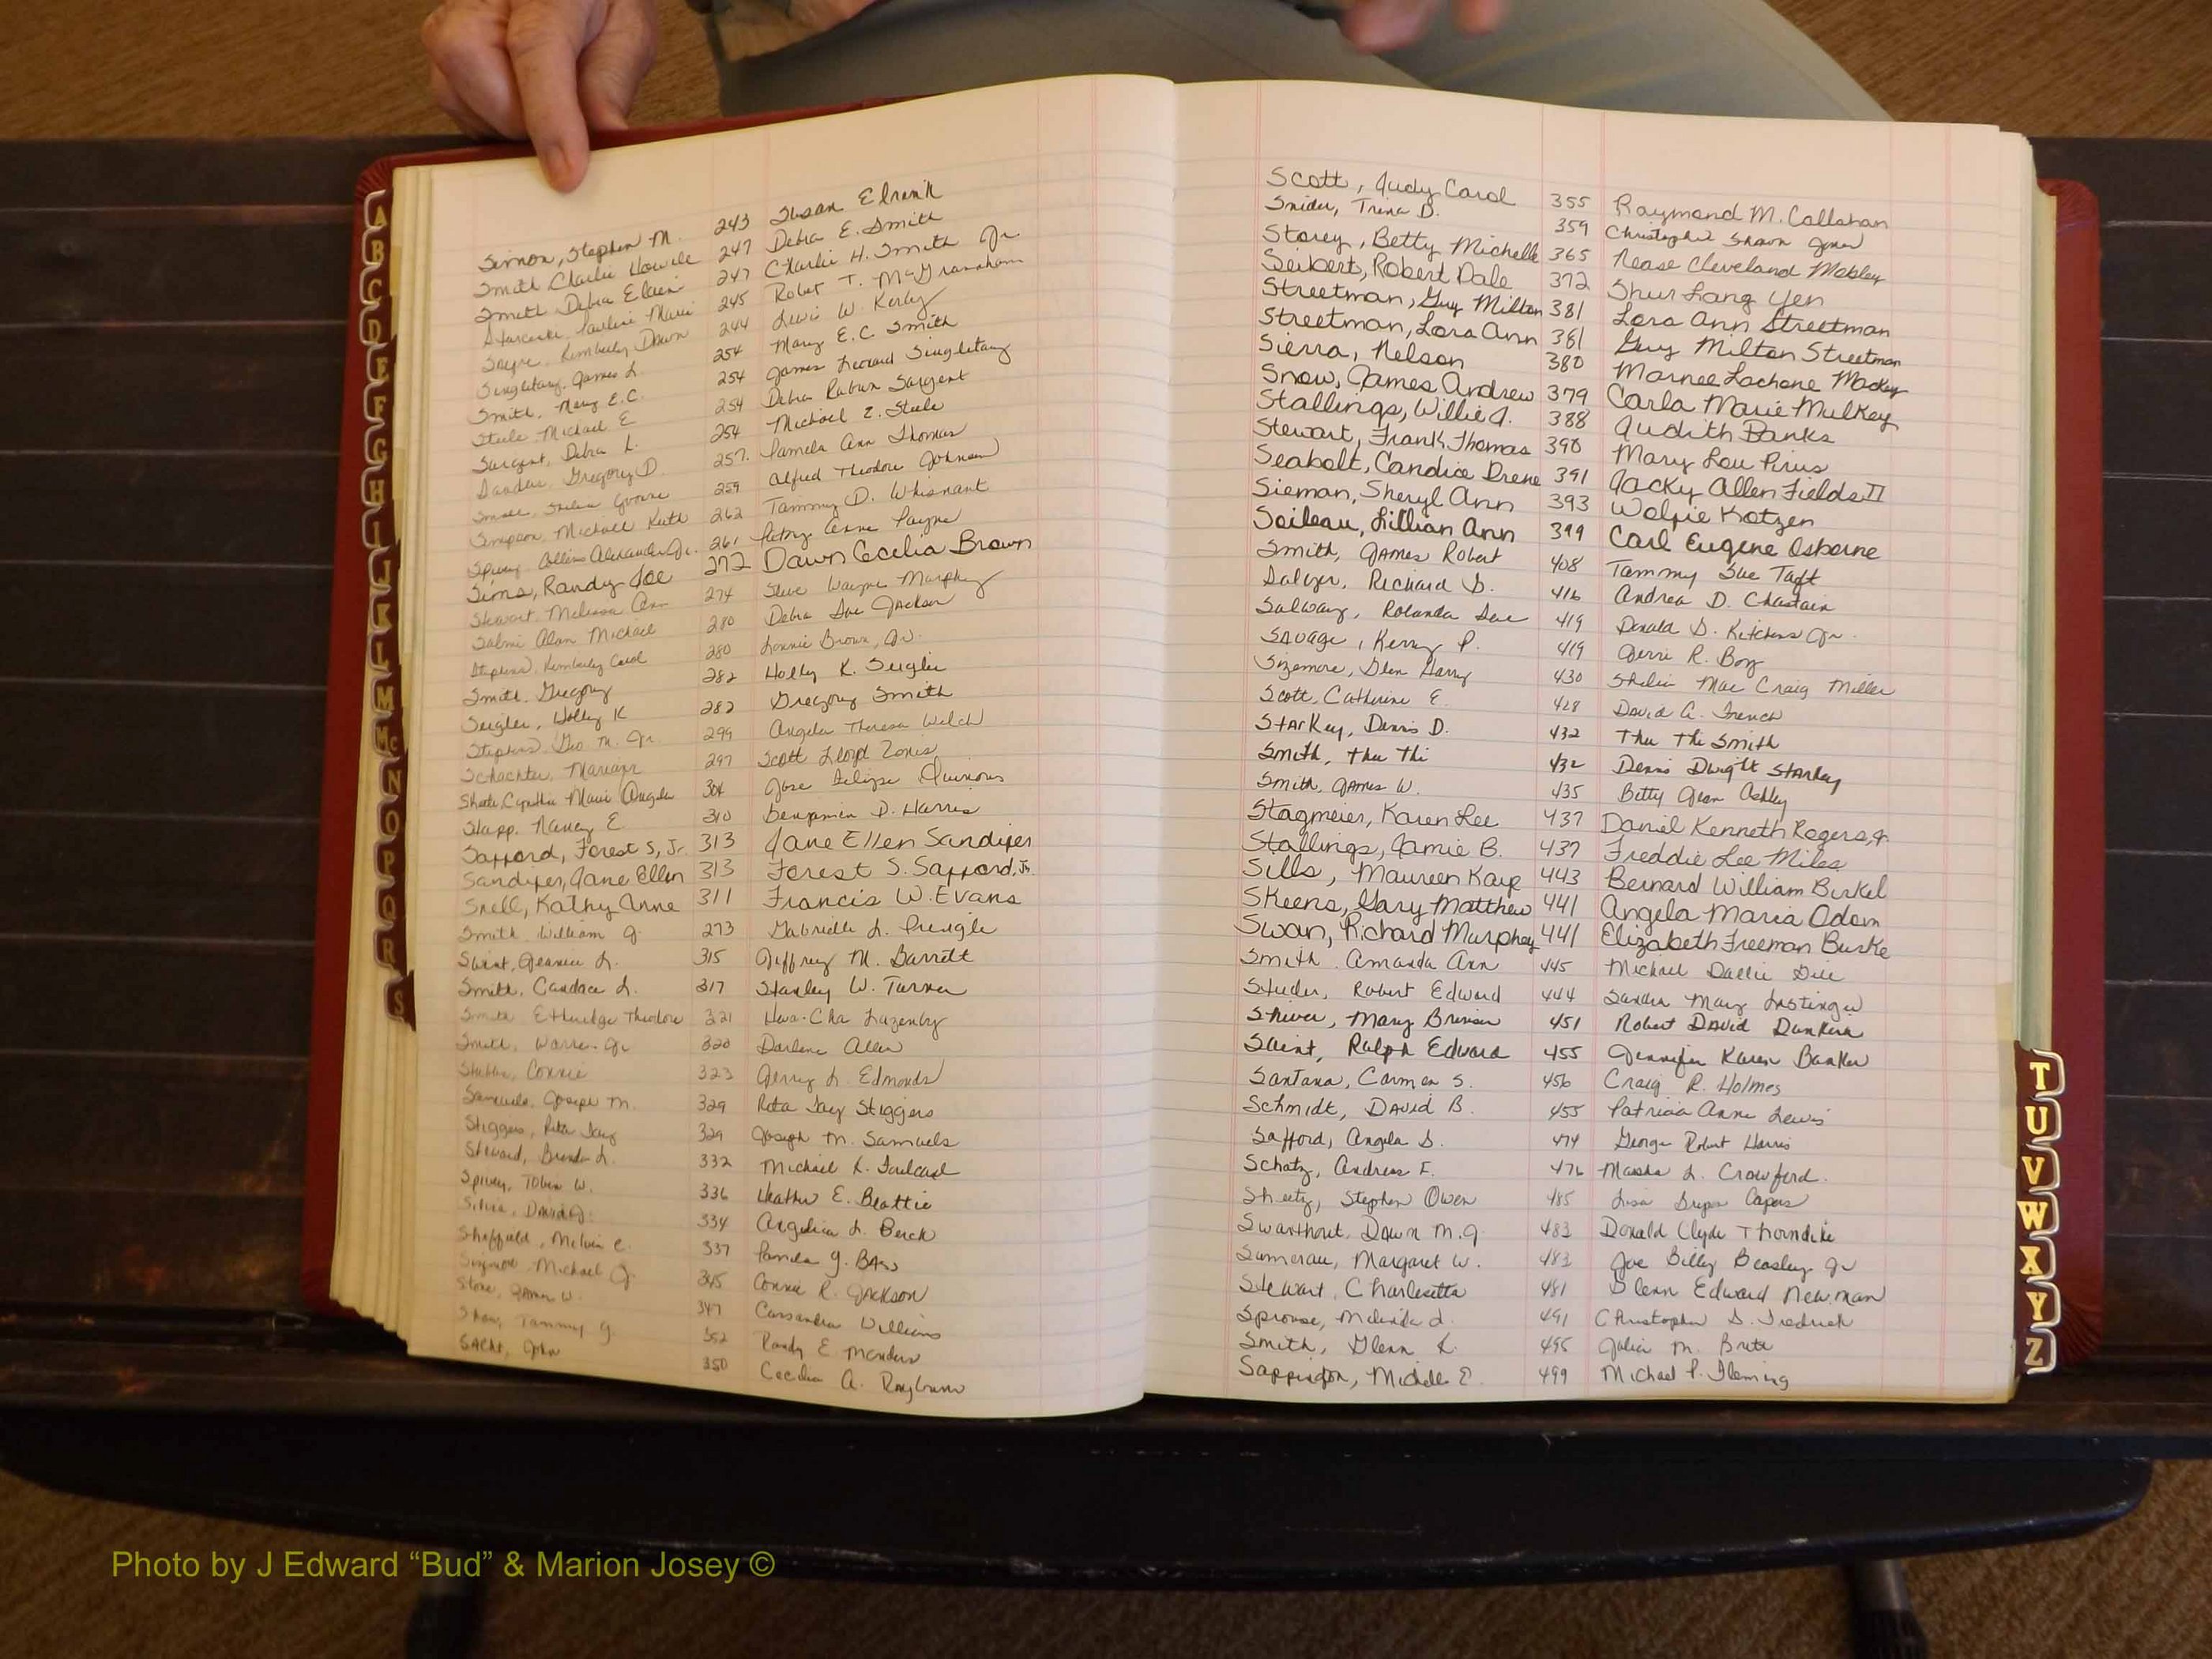 Simon, Stephen M. 243 Susan Elrink
Smith Charlie Howile 247 Debra E. Smith
Smith Debra Elain 247 Charlie H. Smith Jr.
Pauline Marie 245 Robert T. McGranaham
Sayre, Kimberly Dawn 244 Lewis W. Kerby
Singletary, James L. 254 Mary E.C. Smith
Smith, Mary E.C. 254 James Leonard Singletary
Steele Michael E 254 Debra Sargent
Sargent, Debra L. 254 Michael E. Steele
Gregory D. 257. Pamela Ann Thomas
259 Alfred Theodore Johnson
Simpson, Michael Keith 262 Tammy D. Whisnant
Spivey Collins Alexander Jr. 261 Patsy Anne Payne
Sims, Randy Joe 272 Dawn Cecelia Brown
Stewart, Melissa Ann 274 Steve Wayne Murphy
Salmi Alan Michael 280 Debra Sue Jackson
Stephens, Kimberly Carol 280 Lonnie Brown, Jr.
Smith, Gregory 282 Holly K. Seigler
Seigler, Holly K 282 Gregory Smith
Stephens, Geo. M. Jr. 299 Angela Theresa Welch
Schachter, Mariann 297 Scott Lloyd Zonis
Cynthia Marie Angela 304 Jose Felipe Quinones
Stapp, Nancy E 310 Benjamin D. Harris
Safford, Forest S, Jr. 313 Jane Ellen Sandifer
Sandifer, Jane Ellen 313 Forest S. Safford, Jr.
Snell, Kathy Anne 311 Francis W. Evans
Smith William J. 273 Gabrielle L. Pringle
Swint, Jeanie L. 315 Jeffrey M. Barrett
Smith, Candace L. 317 Stanley W. Turner
Smith Etheridge Theodore 321 Hwa-Cha Lazenby
Smith, Warren Jr 320 Darlene Allen
Connie 323 Jerry L. Edmonds
Samuels, Joseph M. 329 Rita Fay Stiggers
Stiggers, Rita Fay 329 Joseph M. Samuels
Steward, Brenda L. 332 Michael K.
Spivey, Tobin W. 336 Heather E. Beattie
Silvia, David J. 334 Angelica L. Berck
Sheffield, Melvin C. 337 Pamela J. Bass
Michael J. 345 Connie R. Jackson
Stone, James W. 347 Cassandra Williams
Shaw, Tammy J 352 Randy E. Manders
Sacht, John 350 Cecilia A.
Scott, Judy Carol 355 Raymond M. Callahan
Snider, Trina D. 359 Christopher Shawn Jones
Storey, Betty Michelle 365 Nease Cleveland Mobley
Seibert, Robert Dale 372 Shur Lang Yen
Streetman, Guy Milton 381 Lora Ann Streetman
Streetman, Lora Ann 381 Guy Milton Streetman
Sierra, Nelson 380 Marnee Lachone Mackey
Snow, James Andrew 379 Carla Marie Mulkey
Stallings, Willie J. 388 Judith Banks
Stewart, Frank Thomas 390 Mary Lou Pirus
Seabolt, Candice Irene 391 Jacky Allen Fields II
Sieman, Sheryl Ann 393 Wolfie Kotzen
Soileau, Lillian Ann 399 Carl Eugene Osborne
Smith, James Robert 408 Tammy Sue Taft
Salizer, Richard D. 416 Andrea D. Chastain
Salway, Rolanda Sue 419 Donald S. Kitchens Jr.
Savage, Kerry P. 419 Gerri R. Boy
Sizemore, Glen Harry 430 Shelia Mae Craig Miller
Scott, Catherine E. 428 David A. French
Starkey, Dennis D. 432 Thu Thi Smith
Smith, Thu Thi 432 Dennis Dwight Starkey
Smith, James W. 435 Betty Jean Ashley
Stagmeier, Karen Lee 437 Daniel Kenneth Rogers, Jr.
Stallings, Jamie B. 437 Freddie Lee Miles
Sills, Maureen Kaye 443 Bernard William Birkel
Skeens, Gary Matthew 441 Angela Maria Odom
Swan, Richard Murphey 441 Elizabeth Freeman Burke
Smith Amanda Ann 445 Michael Dallie Dill
Studer, Robert Edward 444 Sandra Mary Lustinger
Shiver, Mary Brinson 451 Robert David Dunkirk
Saint, Ralph Edward 455 Jennifer Karen Banker
Santana, Carmen S. 456 Craig R. Holmes
Schmidt, David B. 455 Patricia Anne Lewis
Safford, Angela S. 474 George Robert Harris
Schatz, Andreas F. 476 Marsha L. Crawford.
Sheetz, Stephen Owen 485 Lisa Capers
Swarthout, Dawn M.J. 483 Donald Clyde Thorndike
Sumerau, Margaret W. 483 Joe Billy Beasley Jr
Stewart, Charlesetta 481 Glenn Edward Newman
Sprouse, Melinda L. 491 Christopher S. Fredrick
Smith, Glenn K. 495 Julia M. Brite
Sappington, Michelle E. 499 Michael P. Fleming
A
B
C
D
E
F
G
H
I
J
K
L
M
Mc
N
O
P
Q
R
S
T
U
V
W
X
Y
Z
Photo by J Edward “Bud” & Marion Josey ©